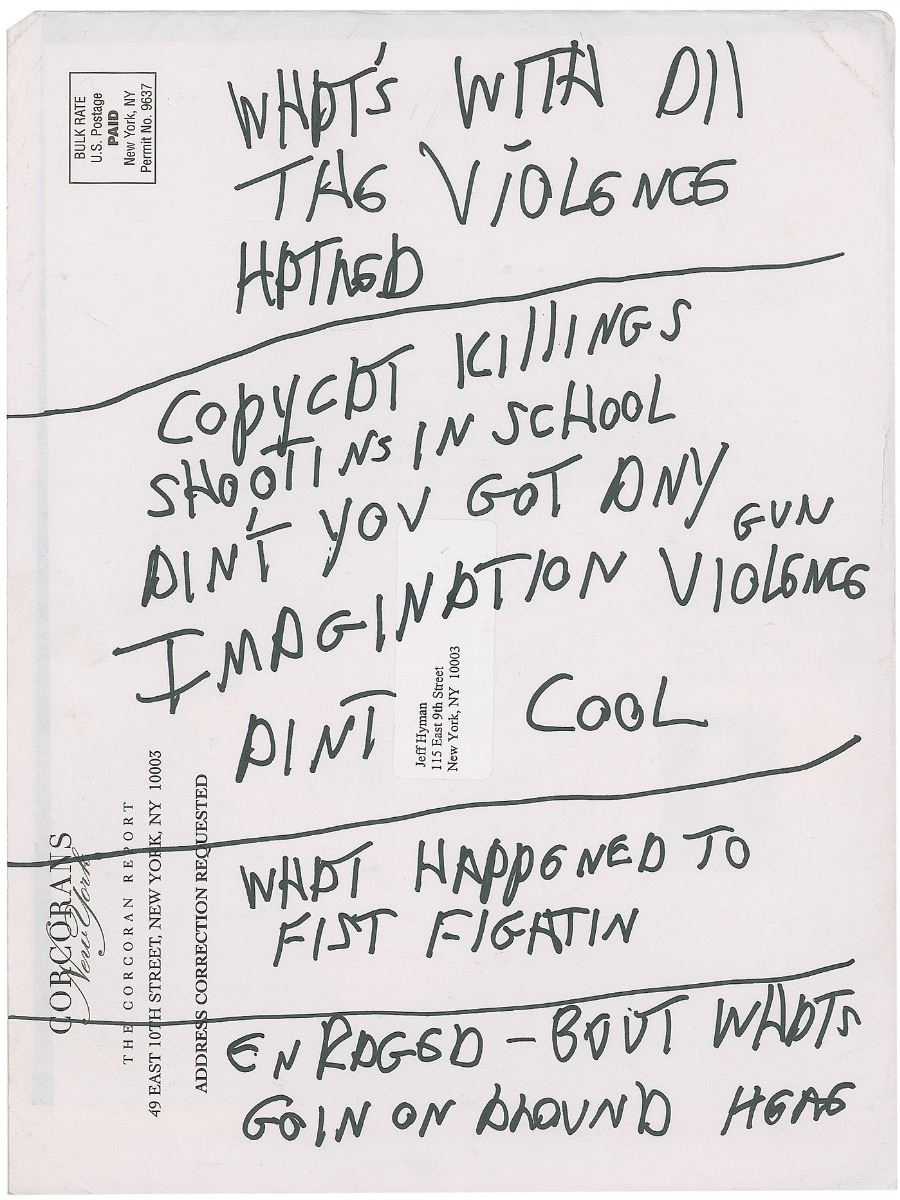 WHAT'S WITH All
THE VIOLENCE
HATRED
COPYCAT KIllINGS
SHOOTINS IN SCHOOL
AIN'T YOU GOT ANY
IMAGINATION GUN VIOLENCE
AINT COOL
WHAT HAPPENED TO
FIST FIGHTIN
ENRAGED - BOUT WHATS
GOIN ON AROUND HERE
BULK RATE
U.S. Postage
PAID
New York, NY
Permit No. 9637
Jeff Hyman
115 East 9th Street
New York, NY 10003
CORCORANS
New York
THE CORCORAN REPORT
49 EAST 10TH STREET, NEW YORK, NY 10003
ADDRESS CORRECTION REQUESTED